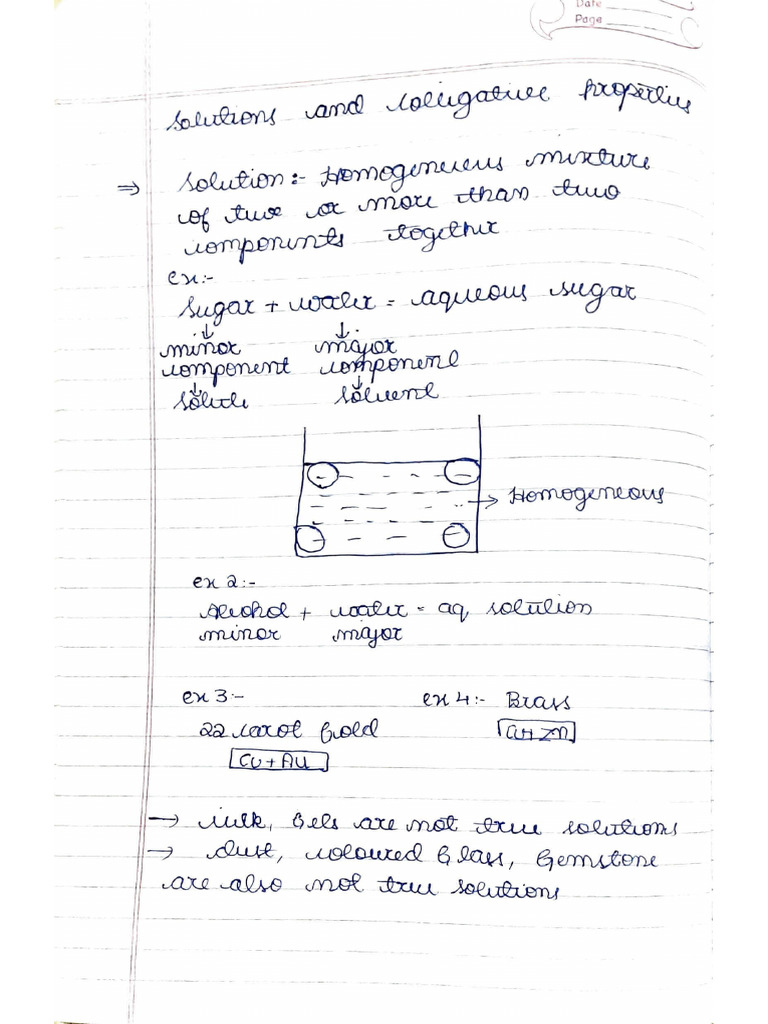 Date
Page
Solutions and Colligative Properties
⇒ Solution:- Homogeneous mixture
of two or more than two
components together
ex:-
Sugar + Water = aqueous sugar
↓ ↓
minor major
component component
↓ ↓
Solute Solvent
→ Homogeneous
ex 2:-
Alcohol + water = aq. solution
minor major
ex 3:- ex 4:- Brass
22 carot Gold Cu+Zn
Cu + Au
→ Milk, Gels are not true solutions
→ dust, coloured Glass, Gemstone
are also not true solutions